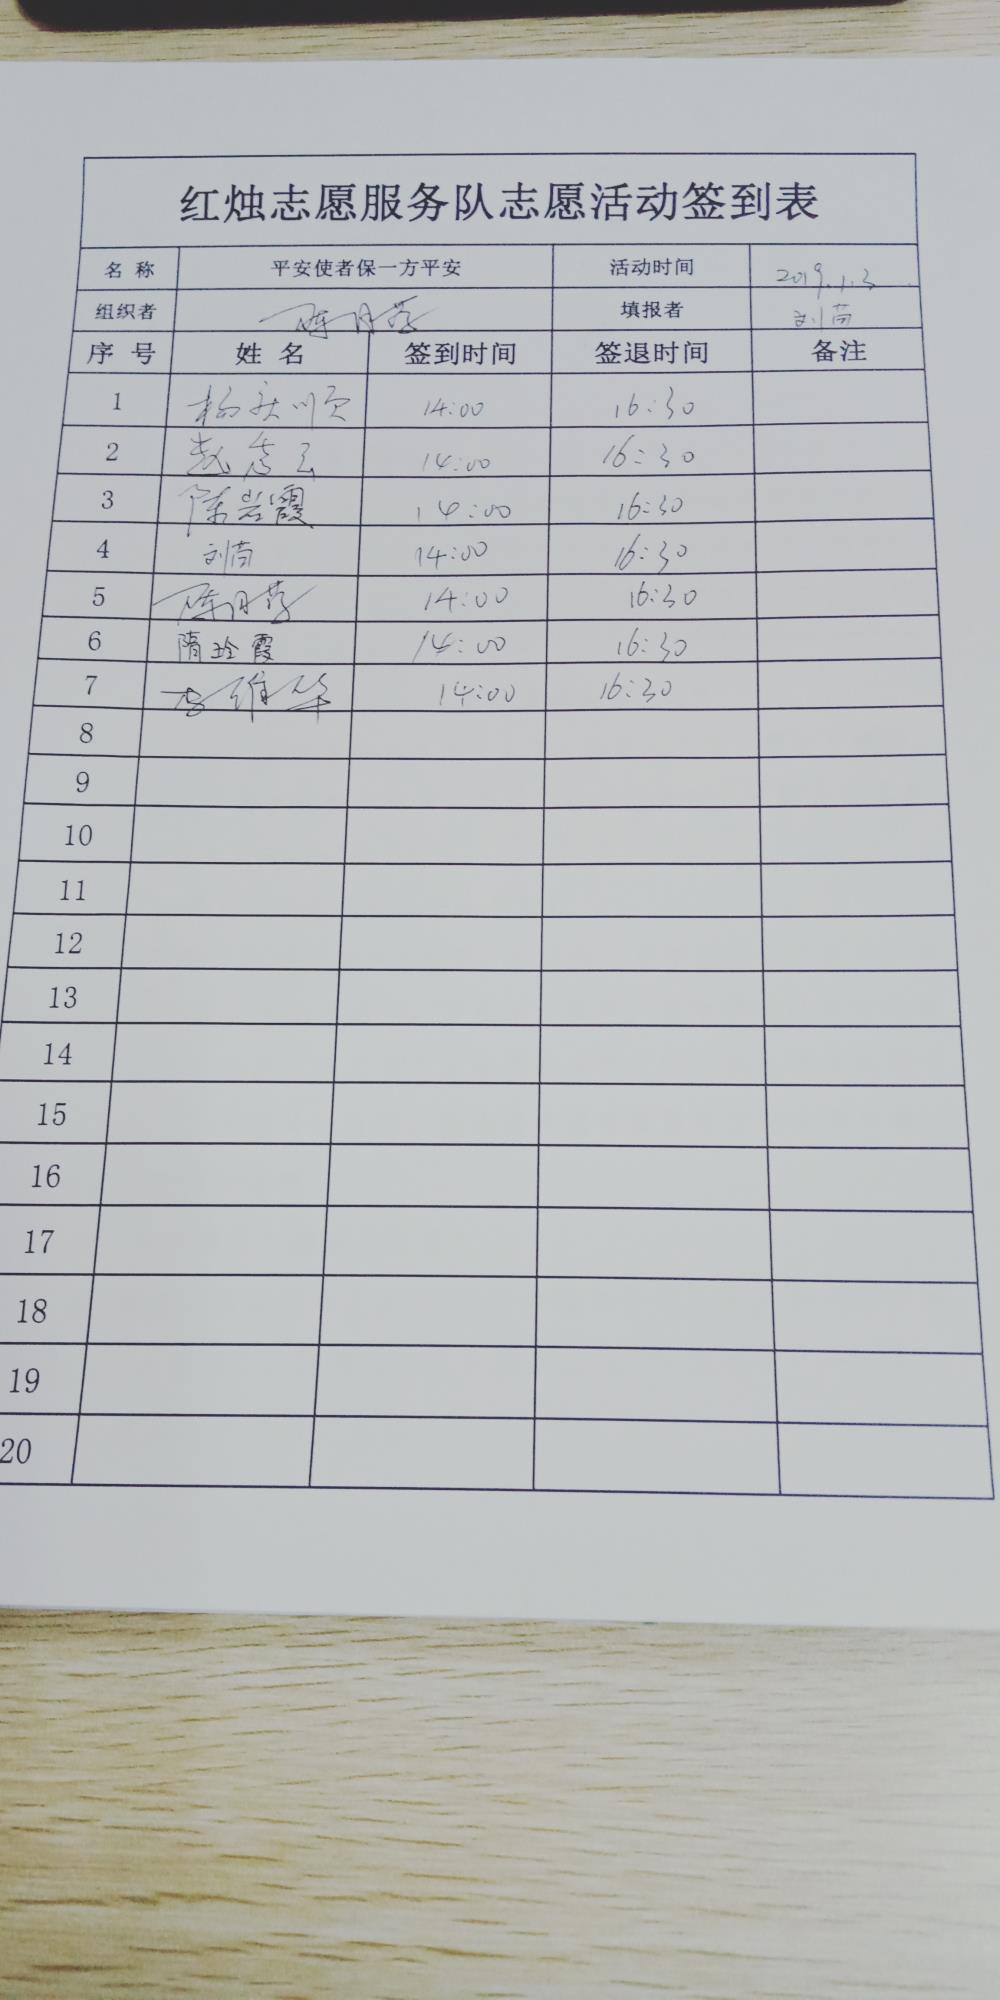 红烛志愿服务队志愿活动签到表
名 称 平安使者保一方平安 活动时间 2019.1.3
组织者 陈月芬 填报者 刘茼
序 号 姓 名 签到时间 签退时间 备注
1 14:00 16:30
2 14:00 16:30
3 陈岩霞 14:00 16:30
4 刘茼 14:00 16:30
5 14:00 16:30
6 隋玲霞 14:00 16:30
7 14:00 16:30
8
9
10
11
12
13
14
15
16
17
18
19
20